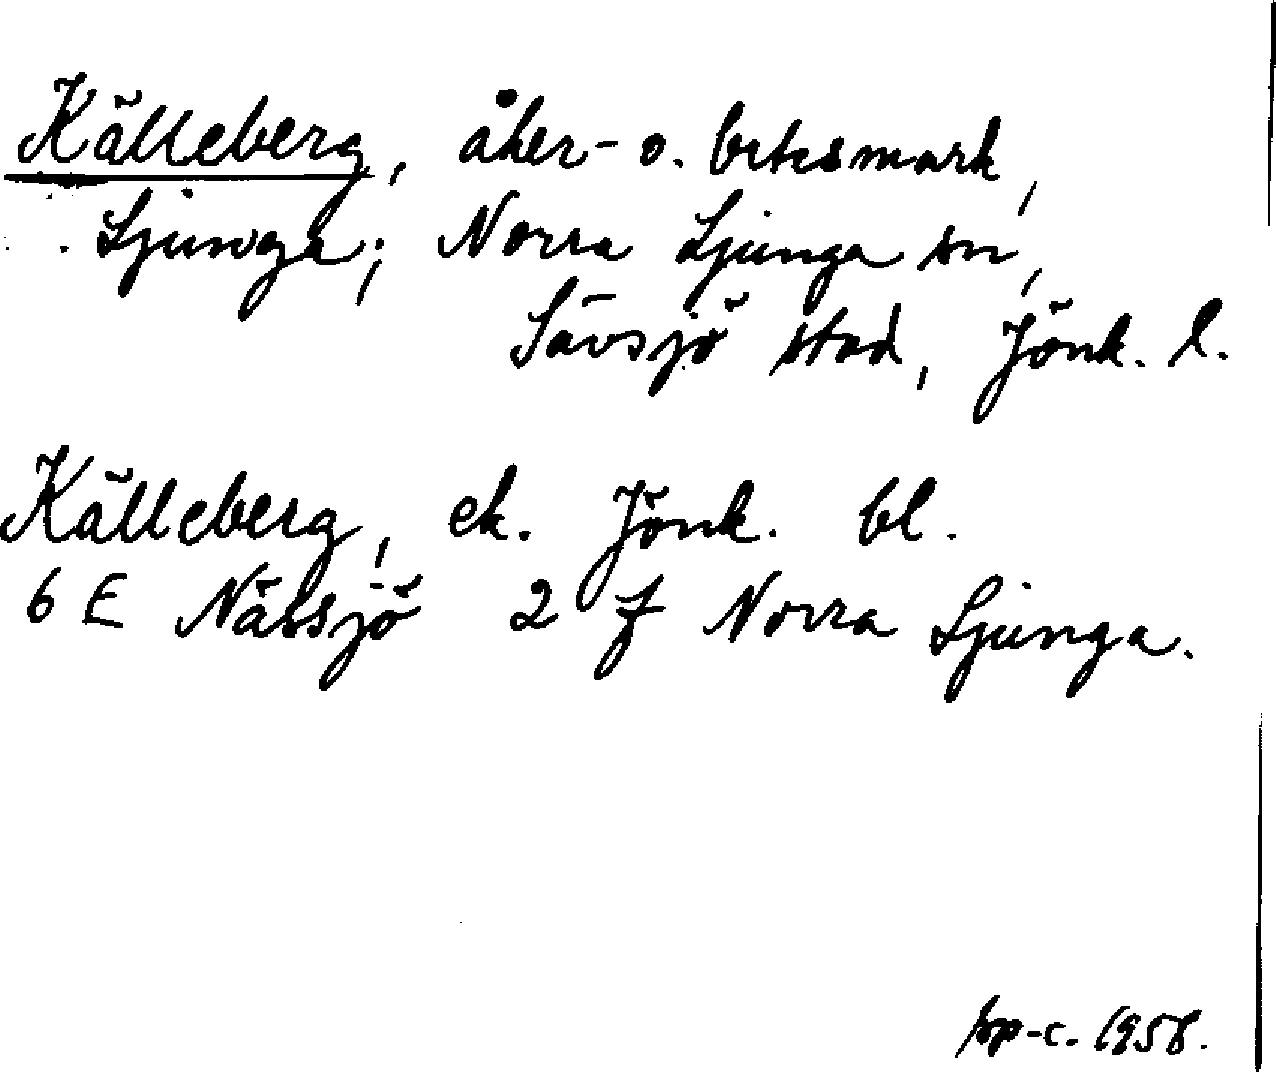 Källeberg, åker- o. betesmark,
Ljunga; Norra Ljunga sn,
Sävsjö stad, Jönk. l.
Källeberg, ek. Jönk. bl.
6 E Nässjö 2 f Norra Ljunga.
1958.